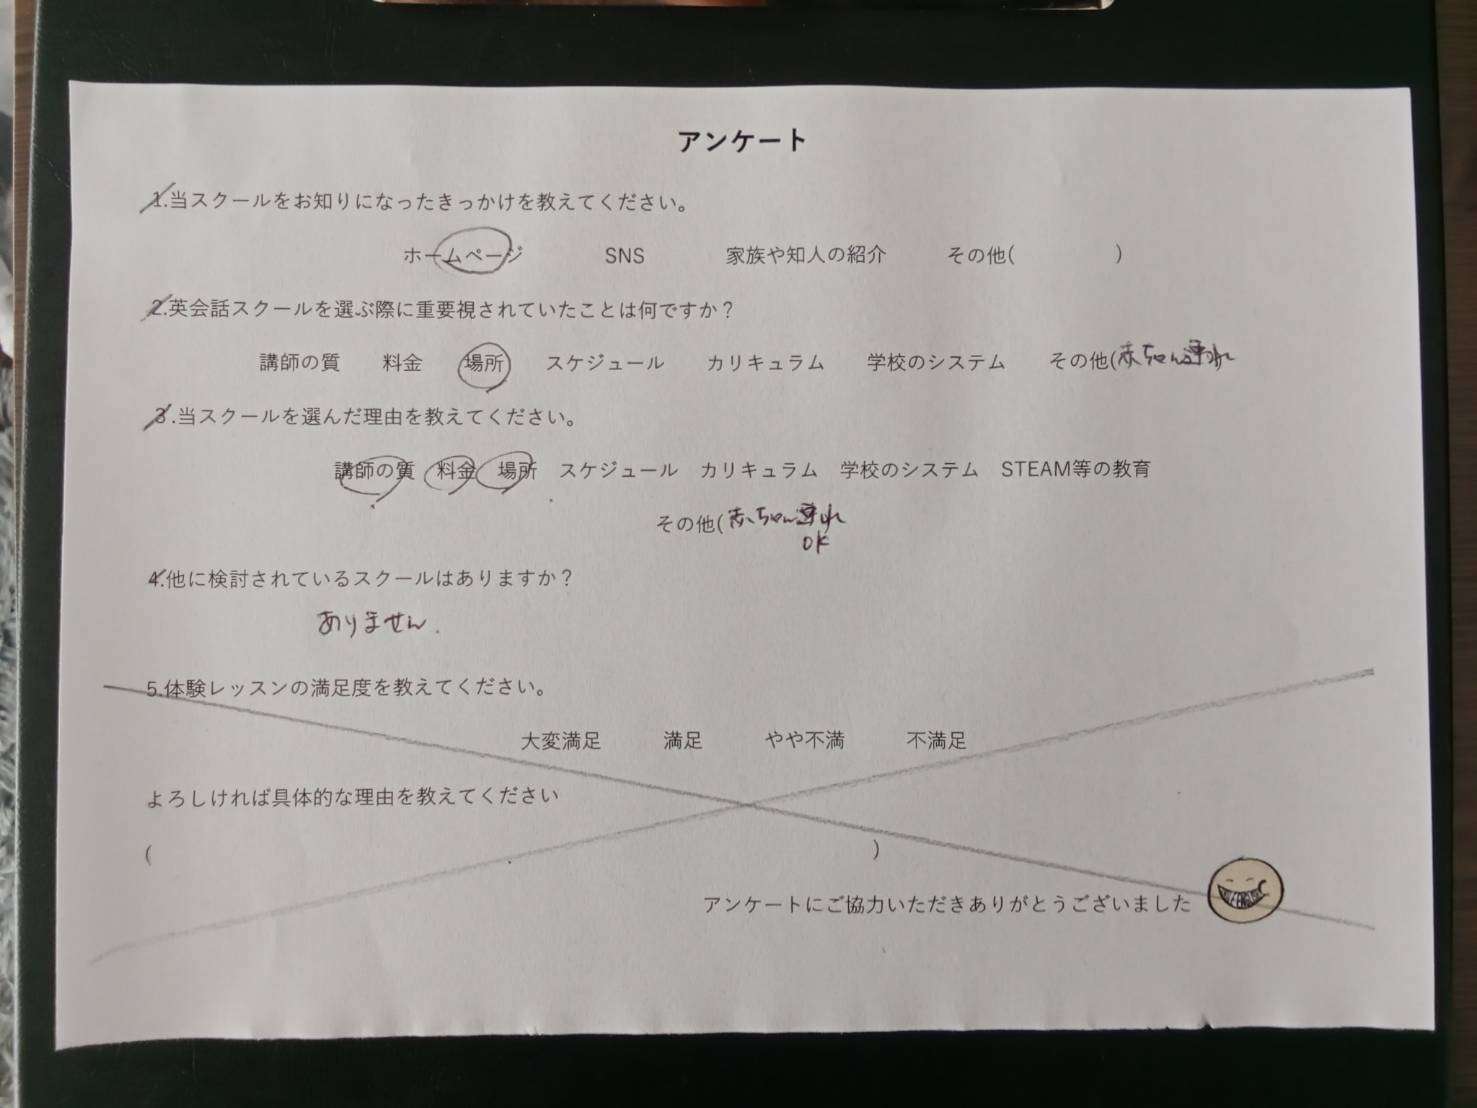 アンケート
1.当スクールをお知りになったきっかけを教えてください。
ホームページ SNS 家族や知人の紹介 その他( )
2.英会話スクールを選ぶ際に重要視されていたことは何ですか？
講師の質 料金 場所 スケジュール カリキュラム 学校のシステム その他(赤ちゃん連れ
3.当スクールを選んだ理由を教えてください。
講師の質 料金 場所 スケジュール カリキュラム 学校のシステム STEAM等の教育
その他(赤ちゃん連れ
OK
4.他に検討されているスクールはありますか？
ありません.
5.体験レッスンの満足度を教えてください。
大変満足 満足 やや不満 不満足
よろしければ具体的な理由を教えてください
( )
アンケートにご協力いただきありがとうございました